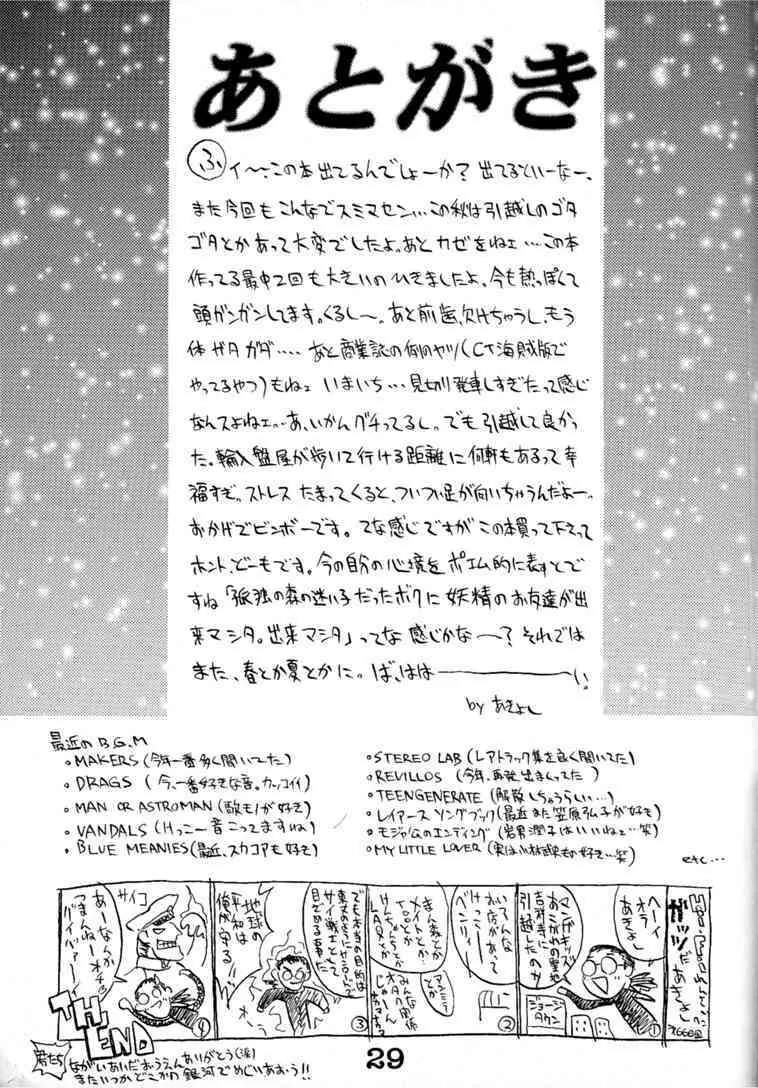 あとがき
ふィ〜、この本出てるんでしょーか?出てるといーなー、
また今回もこんなでスミマセン…この秋は引越しのゴタ
ゴタとかあって大変でしたよ。あとカゼをねェ…この本
作ってる最中2回も大きいのひきましたよ、今も熱っぽくて
頭ガンガンしてます。くるし〜。あと前歯、欠けちゃうし、もう
体ガタガタ‥‥あと商業誌の例のヤツ(CT海賊版で
やってるやつ)もねェいまいち…見切り発車しすぎたって感じ
なんスよねェ…あ、いかんグチってるし。でも引越して良かっ
た。輸入盤屋が歩いて行ける距離に何軒もあるって幸
福すぎ。ストレスたまってくると、ついつい足が向いちゃうんだよー。
おかげでビンボーです。てな感じですがこの本買って下さって
ホントどーもです。今の自分の心境をポエム的に表すとで
すね「孤独の森の迷い子だったボクに妖精のお友達が出
来マシタ。出来マシタ」ってな感じかなー?それでは
また、春とか夏とかに。ば、はは──────い。
by あきよし
最近のB.G.M
。MAKERS(今年一番多く聞いてた)
。DRAGS(今、一番好きな音。カッコイイ)
。MAN OR ASTROMAN(敵モノが好き)
。VANDALS(けっこー音こってますね)
。BLUE MEANIES(最近、スカコアも好き)
。STEREO LAB(レアトラック集を良く聞いてた)
。REVILLOS(今年、再発出まくってた)
。TEENGENERATE(解散しちゃうらしい…)
。レイアースソングブック(最近また笠原弘子が好き)
。モジャ公のエンディング(岩男潤子はいいねェ…笑)
。MY LITTLE LOVER(実は小林武史も好き…笑)
etc…
ガッツだあきよし
第666回
ヘーイ
オラァ
あきよし
マンガキッズ
あこがれの聖地
吉祥寺に
引越したのヵ
ジョージ
タウン
①
いろんな
お店があって
けっこー
ベンリィ
まんが森とか
メイトとか
LAOXとか
アンミラ
とか
みんな
オタク関係
じゃーん
②
でも本当の目的は
サイ戦士として
目ざめる事だ
地球の
平和は
俺が守る!!
③
サイコ
あーなんか
つまんねーオチ
グイバァー
④
TH END
君たち
ながいあいだおうえんありがとう(涙)
またいつかどこかの銀河でめぐりあおう!!
29